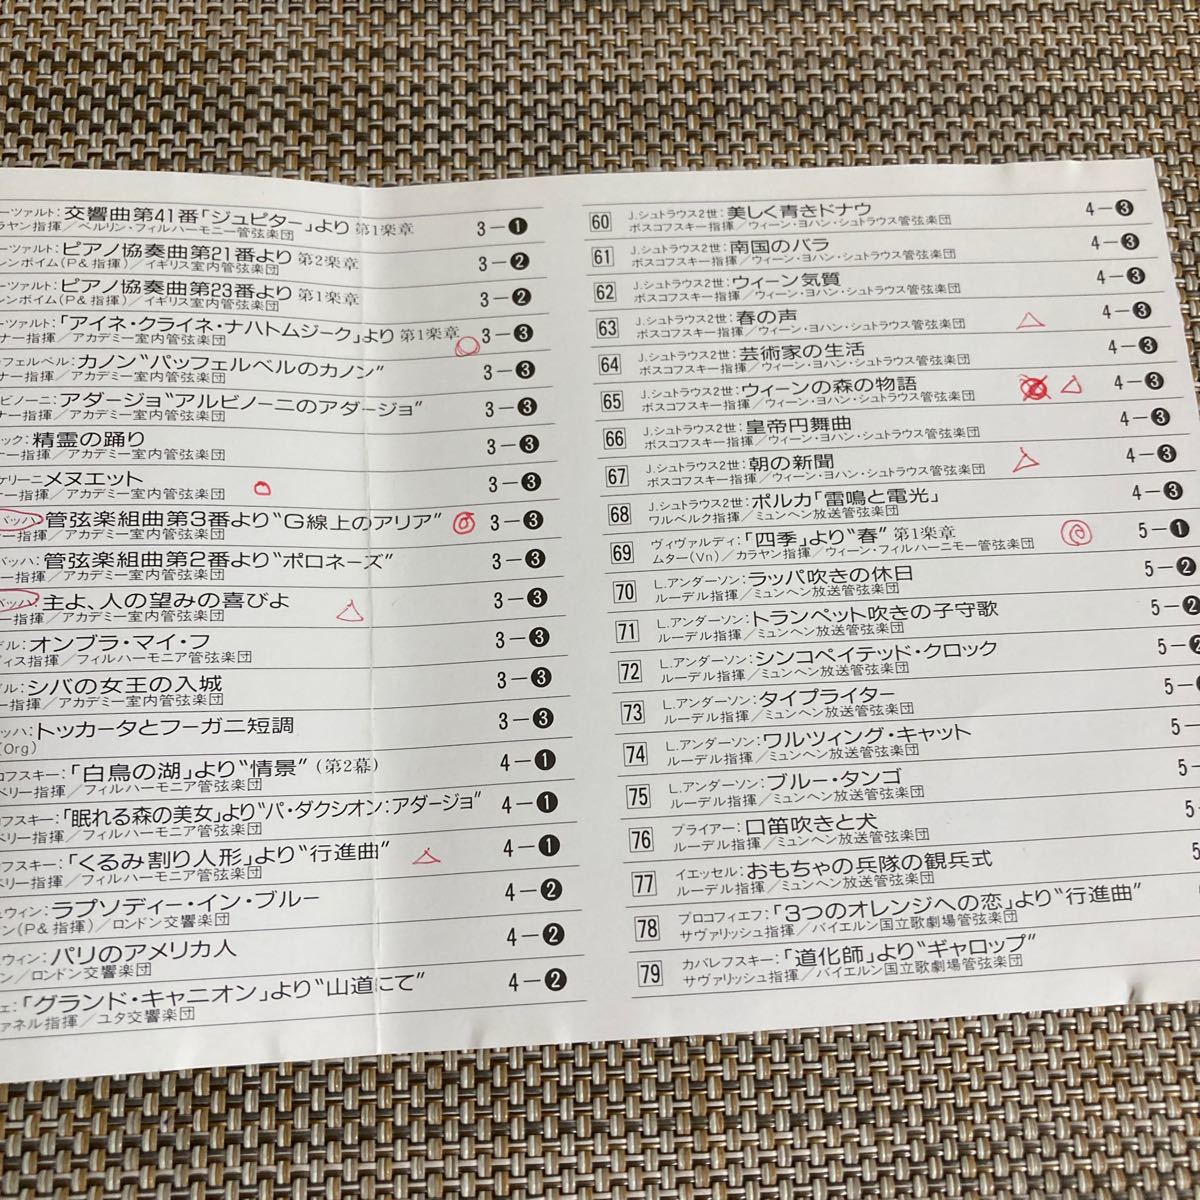 ーツァルト:交響曲第41番「ジュピター」より 第1楽章 3-❶
ラヤン指揮/ベルリン・フィルハーモニー管弦楽団
ーツァルト:ピアノ協奏曲第21番より 第2楽章 3-❷
レンボイム(P&指揮)/イギリス室内管弦楽団
ーツァルト:ピアノ協奏曲第23番より 第1楽章 3-❷
レンボイム(P&指揮)/イギリス室内管弦楽団
ーツァルト:「アイネ・クライネ・ナハトムジーク」より 第1楽章 3-❸
ナー指揮/アカデミー室内管弦楽団
ッフェルベル:カノン“パッフェルベルのカノン” 3-❸
ナー指揮/アカデミー室内管弦楽団
ビノーニ:アダージョ“アルビノーニのアダージョ” 3-❸
ナー指揮/アカデミー室内管弦楽団
ック:精霊の踊り 3-❸
ナー指揮/アカデミー室内管弦楽団
ケリーニ:メヌエット 3-❸
ナー指揮/アカデミー室内管弦楽団
バッハ:管弦楽組曲第3番より“G線上のアリア” 3-❸
ー指揮/アカデミー室内管弦楽団
バッハ:管弦楽組曲第2番より“ポロネーズ” 3-❸
ー指揮/アカデミー室内管弦楽団
バッハ:主よ、人の望みの喜びよ 3-❸
ー指揮/アカデミー室内管弦楽団
デル:オンブラ・マイ・フ 3-❸
ィス指揮/フィルハーモニア管弦楽団
デル:シバの女王の入城 3-❸
ー指揮/アカデミー室内管弦楽団
ッハ:トッカータとフーガニ短調 3-❸
(Org)
コフスキー:「白鳥の湖」より“情景”(第2幕) 4-❶
ベリー指揮/フィルハーモニア管弦楽団
コフスキー:「眠れる森の美女」より“パ・ダクシオン:アダージョ” 4-❶
ベリー指揮/フィルハーモニア管弦楽団
フスキー:「くるみ割り人形」より“行進曲” 4-❶
ベリー指揮/フィルハーモニア管弦楽団
ュウィン:ラプソディー・イン・ブルー 4-❷
ン(P&指揮)/ロンドン交響楽団
ュウィン:パリのアメリカ人 4-❷
ン/ロンドン交響楽団
ェ:「グランド・キャニオン」より“山道にて” 4-❷
ァネル指揮/ユタ交響楽団
60 J.シュトラウス2世:美しく青きドナウ 4-❸
ボスコフスキー指揮/ウィーン・ヨハン・シュトラウス管弦楽団
61 J.シュトラウス2世:南国のバラ 4-❸
ボスコフスキー指揮/ウィーン・ヨハン・シュトラウス管弦楽団
62 J.シュトラウス2世:ウィーン気質 4-❸
ボスコフスキー指揮/ウィーン・ヨハン・シュトラウス管弦楽団
63 J.シュトラウス2世:春の声 4-❸
ボスコフスキー指揮/ウィーン・ヨハン・シュトラウス管弦楽団
64 J.シュトラウス2世:芸術家の生活 4-❸
ボスコフスキー指揮/ウィーン・ヨハン・シュトラウス管弦楽団
65 J.シュトラウス2世:ウィーンの森の物語 4-❸
ボスコフスキー指揮/ウィーン・ヨハン・シュトラウス管弦楽団
66 J.シュトラウス2世:皇帝円舞曲 4-❸
ボスコフスキー指揮/ウィーン・ヨハン・シュトラウス管弦楽団
67 J.シュトラウス2世:朝の新聞 4-❸
ボスコフスキー指揮/ウィーン・ヨハン・シュトラウス管弦楽団
68 J.シュトラウス2世:ポルカ「雷鳴と電光」 4-❸
ワルベルク指揮/ミュンヘン放送管弦楽団
69 ヴィヴァルディ:「四季」より“春” 第1楽章 5-❶
ムター(Vn)/カラヤン指揮/ウィーン・フィルハーモニー管弦楽団
70 L.アンダーソン:ラッパ吹きの休日 5-❷
ルーデル指揮/ミュンヘン放送管弦楽団
71 L.アンダーソン:トランペット吹きの子守歌 5-❷
ルーデル指揮/ミュンヘン放送管弦楽団
72 L.アンダーソン:シンコペイテッド・クロック 5-❷
ルーデル指揮/ミュンヘン放送管弦楽団
73 L.アンダーソン:タイプライター 5-
ルーデル指揮/ミュンヘン放送管弦楽団
74 L.アンダーソン:ワルツィング・キャット 5-
ルーデル指揮/ミュンヘン放送管弦楽団
75 L.アンダーソン:ブルー・タンゴ 5-
ルーデル指揮/ミュンヘン放送管弦楽団
76 プライアー:口笛吹きと犬 5
ルーデル指揮/ミュンヘン放送管弦楽団
77 イエッセル:おもちゃの兵隊の観兵式 5
ルーデル指揮/ミュンヘン放送管弦楽団
78 プロコフィエフ:「3つのオレンジへの恋」より“行進曲”
サヴァリッシュ指揮/バイエルン国立歌劇場管弦楽団
79 カバレフスキー:「道化師」より“ギャロップ”
サヴァリッシュ指揮/バイエルン国立歌劇場管弦楽団